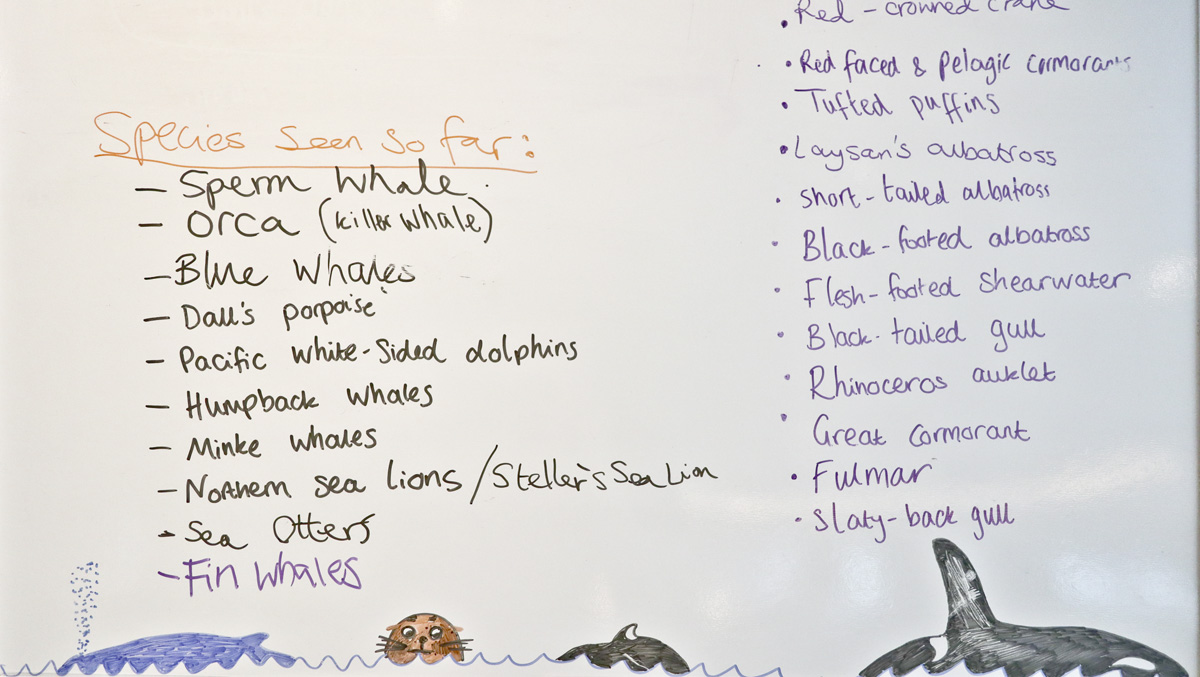 Species seen so far:
– Sperm Whale
– Orca (killer whale)
– Blue Whales
– Dall's porpoise
– Pacific white-sided dolphins
– Humpback whales
– Minke whales
– Northern sea lions / Steller's Sea Lion
– Sea Otters
– Fin Whales
• Red-crowned crane
• Red faced & pelagic cormorants
• Tufted puffins
• Laysan's albatross
• short-tailed albatross
• Black-footed albatross
• Flesh-footed shearwater
• Black-tailed gull
• Rhinoceros auklet
• Great cormorant
• Fulmar
• Slaty-back gull